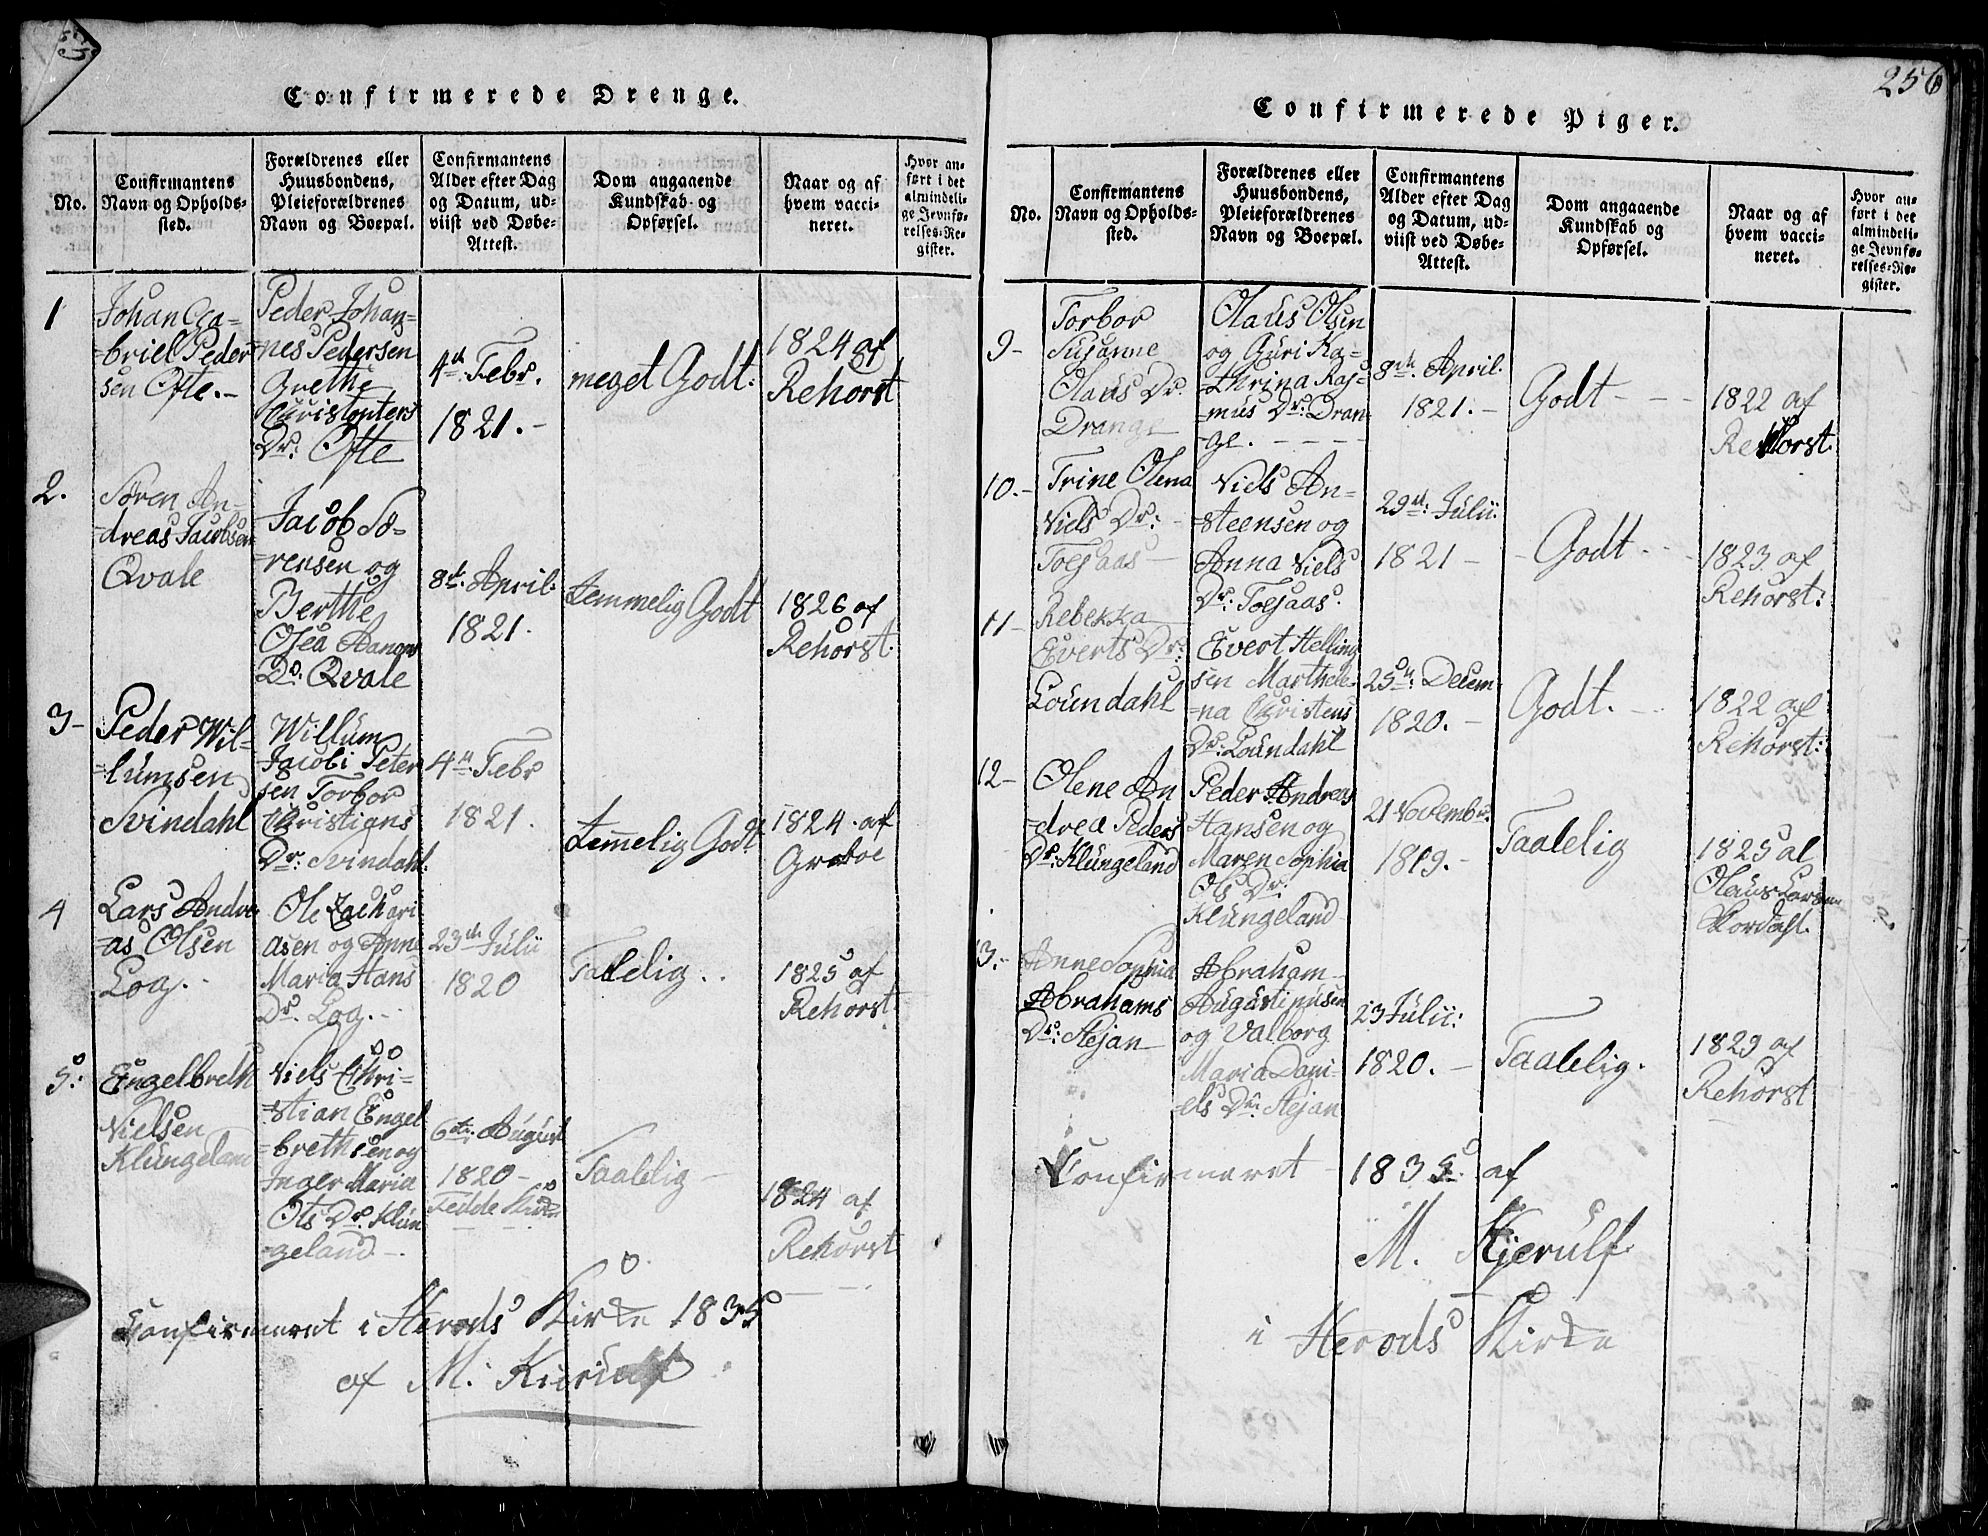 Confirmerede Drenge.
No.
Confirmantens
Navn og Opholds-
sted.
Forældrenes eller
Huusbondens,
Pleieforældrenes
Navn og Boepæl.
Confirmantens
Alder efter Dag
og Datum, ud-
viist ved Døbe-
Attest.
Dom angaaende
Kundskab og
Opførsel.
Naar og af
hvem vacci-
neret.
Hvor an-
ført i det
almindeli-
ge Jevnfø-
relses-Re-
gister.
1
Johan Ga-
=briel Peder
sen Ofte.-
Peder Johan=
=nes Pedersen
Grethe
Christophers
Dr: Ofte
4de Febr.
1821.-
meget Godt.
1824 af
Rehorst
2.
Søren An-
=dreas Jacobsen
Qvale
Jacob Sø-
=rensen og
Berthe
Olea Aanons
Dr. Qvale
8de April.
1821.
temmelig Godt
1826 af
Rehorst.
3-
Peder Wil-
=lumsen
Svindahl
Willum
Jacobi Peter
sen Torbor
Christians
Dr: Svindahl.
4de Febr
1821.
temmelig Godt
1824. af
Greboe
4
Lars Andre
=as Olsen
Log.
Ole Zachari
asen og Anne
Maria Hans
Dr. Log.
23de Julii
1820
Taalelig..
1825 af
Rehorst
5.
Engelbreth
Nielsen
Klungeland
Niels Chri-
=stian Engel
=brethsen og
Inger Maria
Ols Dr. Klun
=geland
6te August
1820-
Taalelig-
1824 af
Rehorst
Confirmeret i Herods Kirke 1835
af M: Kierulf
256
Confirmerede Piger.
No.
Confirmantens
Navn og Opholds-
sted.
Forældrenes eller
Huusbondens,
Pleieforældrenes
Navn og Boepæl.
Confirmantens
Alder efter Dag
og Datum, ud-
viist ved Døbe-
Attest.
Dom angaaende
Kundskab og
Opførsel.
Naar og af
hvem vacci-
neret.
Hvor an-
ført i det
almindeli-
ge Jevnfø-
relses-Re-
gister.
9-
Torbor
Susanne
Olaus Dr.
Drange
Olaus Olsen
og Guri Ka=
=thrina Ras=
=mus Dr: Dran=
=ge.
8de April.
1821.-
Godt - -
1822 af
Rehorst.
10.-
Trine Olena
Niels Dr:
Toesaas-
Niels An=
=steensen og
Anna Niels
Dr: Toesaas.
29de: Julii.
1821-
- Godt - -
1823 af
Rehorst.
11-
Rebekka
Everts Dr:
Loundahl
Evert Helling
sen Marthele-
=na Christens
Dr: Loundahl
25de: Decem-
1820.-
Godt.-
1822 af
Rehorst:
12-
Olene An
=drea Peders
Dr: Klungeland
Peder Andreas
Hansen og
Maren Sophia
Ols Dr:
Klungeland
21 Novembr.
1819.-
Taalelig
1825 af
Olaus Larsen
Nordahl.
13.-
Anne Sophia
Abrahams
Dr: Stejan
Abraham
Augustinusen
og Valborg
Maria Dani-
els Dr: Stejan
23 Julii:
1820.-
Taalelig.
1823 af
Rehorst
Confirmeret 1835. af
M. Kjerulf.
i Herods Kirke